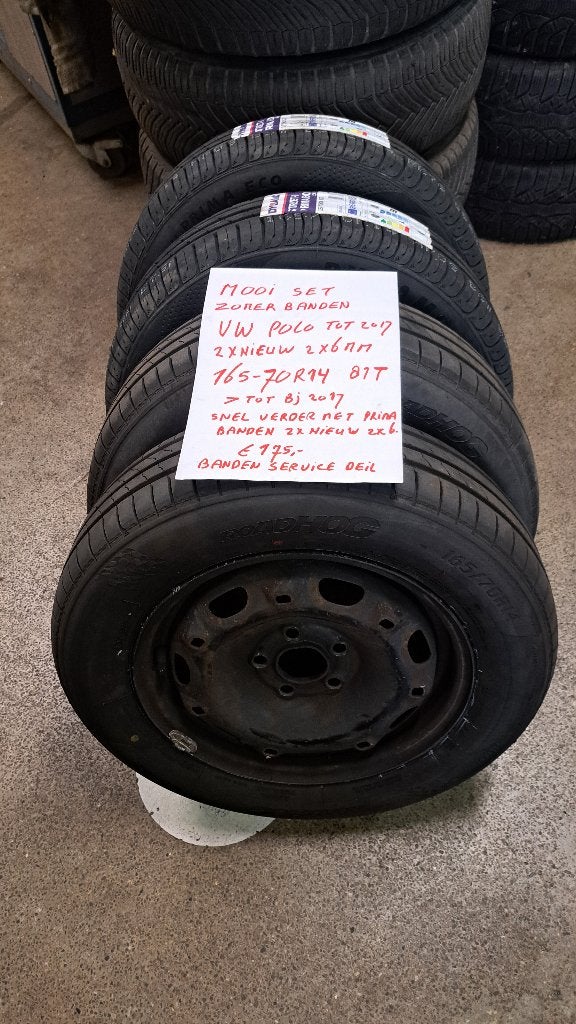 PRIMA ECO
MOOI SET
ZOMER BANDEN
VW POLO TOT 2017
2XNIEUW 2X6MM
165-70R14 81T
> TOT BJ 2017
SNEL VERDER MET PRIMA
BANDEN 2X NIEUW 2X6.
€ 175,-
BANDEN SERVICE DEIL
ROADHOG
165/70R14